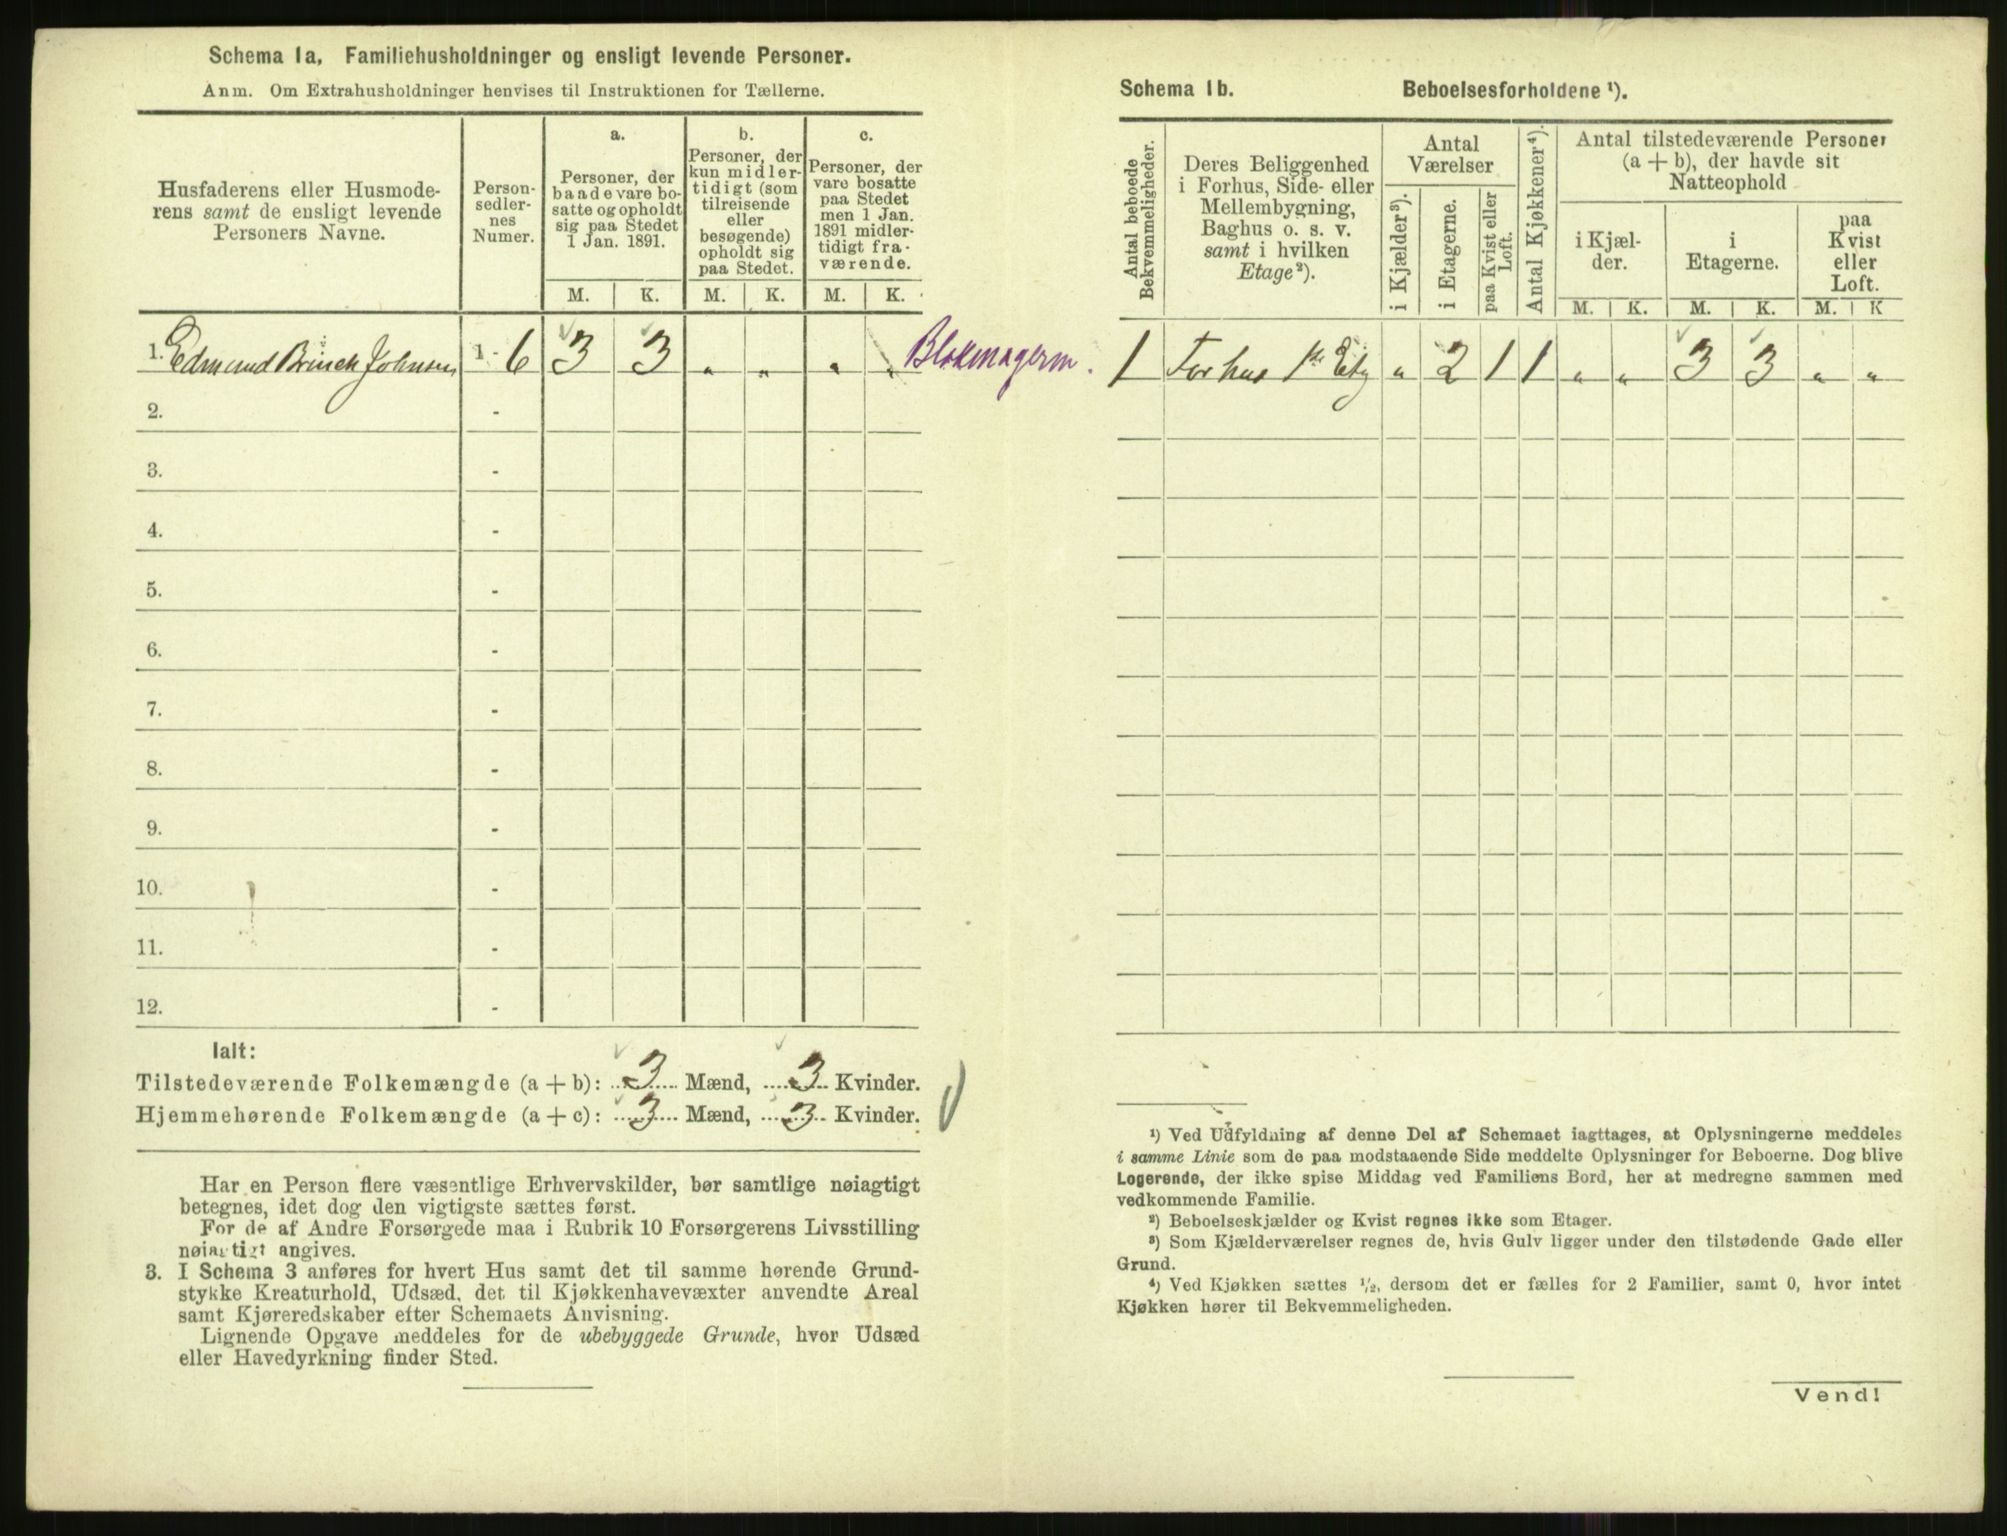 Schema 1a, Familiehusholdninger og ensligt levende Personer.
Anm. Om Extrahusholdninger henvises til Instruktionen for Tællerne.
Husfaderens eller Husmode-
rens samt de ensligt levende
Personers Navne.
Person-
sedler-
nes
Numer.
a.
Personer, der
baade vare bo-
satte og opholdt
sig paa Stedet
1 Jan. 1891.
b.
Personer, der
kun midler-
tidigt (som
tilreisende
eller
besøgende)
opholdt sig
paa Stedet.
c.
Personer, der
vare bosatte
paa Stedet
men 1 Jan.
1891 midler-
tidigt fra-
værende.
M. K. M. K. M. K.
1. Edmund Brinch Johnsen 1 - 6 3 3 „ „ „ „ Blokmagerm.
2. -
3. -
4. -
5. -
6. -
7. -
8. -
9. -
10. -
11. -
12. -
Ialt:
Tilstedeværende Folkemængde (a + b): 3 Mænd, 3 Kvinder.
Hjemmehørende Folkemængde (a + c): 3 Mænd, 3 Kvinder.
Har en Person flere væsentlige Erhvervskilder, bør samtlige nøiagtigt
betegnes, idet dog den vigtigste sættes først.
For de af Andre Forsørgede maa i Rubrik 10 Forsørgerens Livsstilling
nøiagtigt angives.
3. I Schema 3 anføres for hvert Hus samt det til samme hørende Grund-
stykke Kreaturhold, Udsæd, det til Kjøkkenhavevæxter anvendte Areal
samt Kjøreredskaber efter Schemaets Anvisning.
Lignende Opgave meddeles for de ubebyggede Grunde, hvor Udsæd
eller Havedyrkning finder Sted.
Schema 1b. Beboelsesforholdene ¹).
Antal beboede
Bekvemmeligheder.
Deres Beliggenhed
i Forhus, Side- eller
Mellembygning,
Baghus o. s. v.
samt i hvilken
Etage²).
Antal
Værelser
i Kjælder³).
i Etagerne.
paa Kvist eller
Loft.
Antal Kjøkkener⁴).
Antal tilstedeværende Personer
(a + b), der havde sit
Natteophold
i Kjæl-
der.
i
Etagerne.
paa
Kvist
eller
Loft.
M. K. M. K. M. K
1 Forhus 1ste Etg „ 2 1 1 „ „ 3 3 „ „
¹) Ved Udfyldning af denne Del af Schemaet iagttages, at Oplysningerne meddeles
i samme Linie som de paa modstaaende Side meddelte Oplysninger for Beboerne. Dog blive
Logerende, der ikke spise Middag ved Familiens Bord, her at medregne sammen med
vedkommende Familie.
²) Beboelseskjælder og Kvist regnes ikke som Etager.
³) Som Kjælderværelser regnes de, hvis Gulv ligger under den tilstødende Gade eller
Grund.
⁴) Ved Kjøkken sættes ½, dersom det er fælles for 2 Familier, samt 0, hvor intet
Kjøkken hører til Bekvemmeligheden.
Vend!